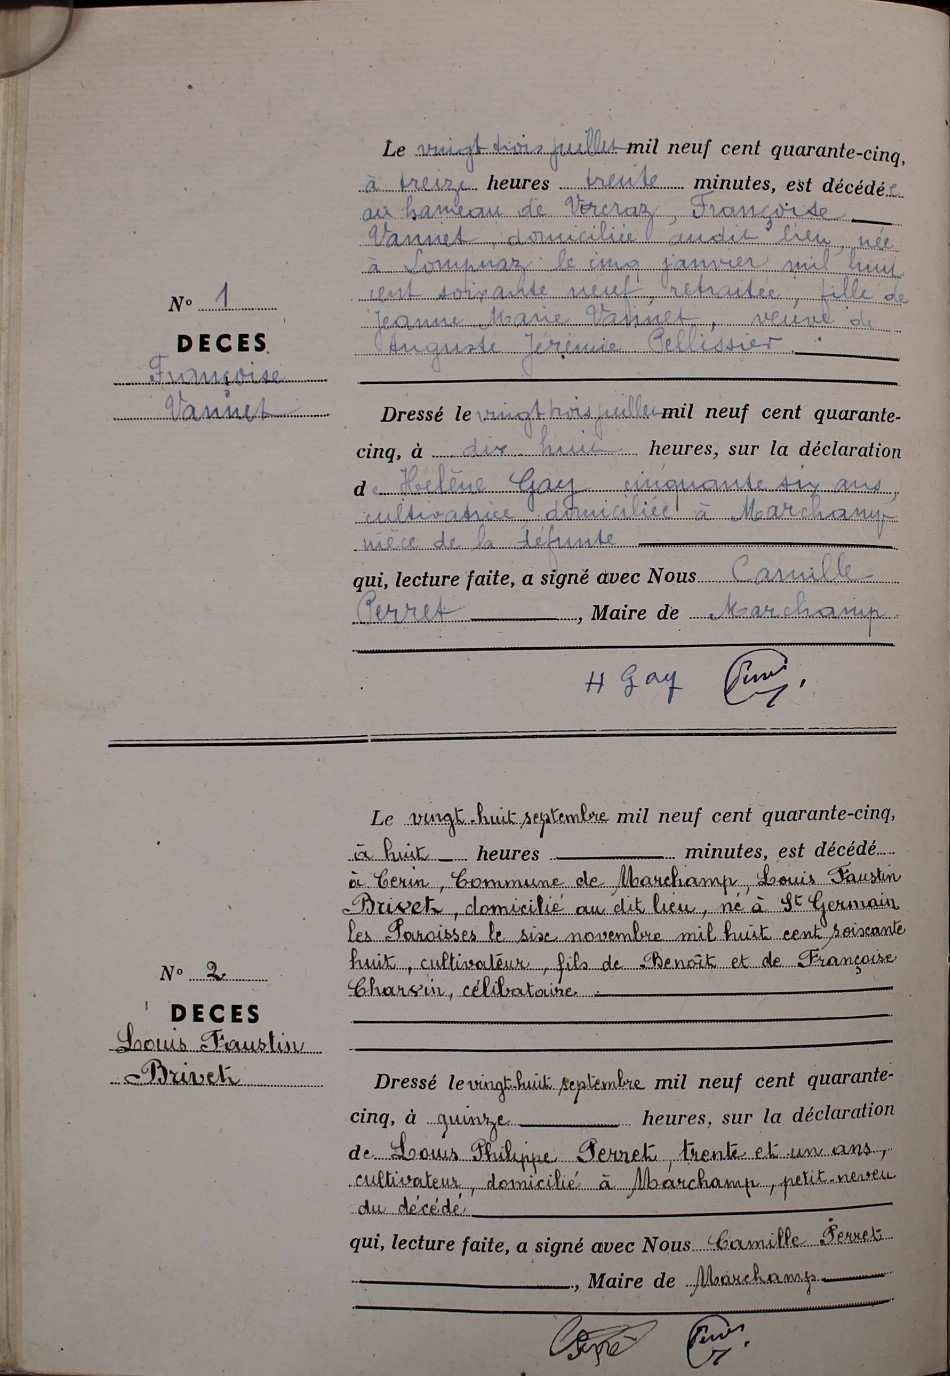 Le vingt trois juillet mil neuf cent quarante-cinq,
à treize heures trente minutes, est décédée
au hameau de Vercraz, Françoise
Vannet, domiciliée audit lieu, née
à Lompnaz le cinq janvier mil huit
cent soixante neuf, retraitée, fille de
Jeanne Marie Vannet, veuve de
Auguste Jérémie Pellissier.
N° 1
DECES
Françoise
Vannet
Dressé le vingt trois juillet mil neuf cent quarante-
cinq, à dix huit heures, sur la déclaration
de Hélène Gay cinquante six ans,
cultivatrice, domiciliée à Marchamp
nièce de la défunte
qui, lecture faite, a signé avec Nous Camille
Perret, Maire de Marchamp
H Gay
Le vingt-huit septembre mil neuf cent quarante-cinq,
à huit heures minutes, est décédé
à Cerin, Commune de Marchamp, Louis Faustin
Brivet, domicilié au dit lieu, né à St Germain
les Paroisses le six novembre mil huit cent soixante
huit, cultivateur, fils de Benoît et de Françoise
Charvin, célibataire.
N° 2
DECES
Louis Faustin
Brivet
Dressé le vingt-huit septembre mil neuf cent quarante-
cinq, à quinze heures, sur la déclaration
de Louis Philippe Perret, trente et un ans,
cultivateur, domicilié à Marchamp, petit-neveu
du décédé
qui, lecture faite, a signé avec Nous Camille Perret
, Maire de Marchamp